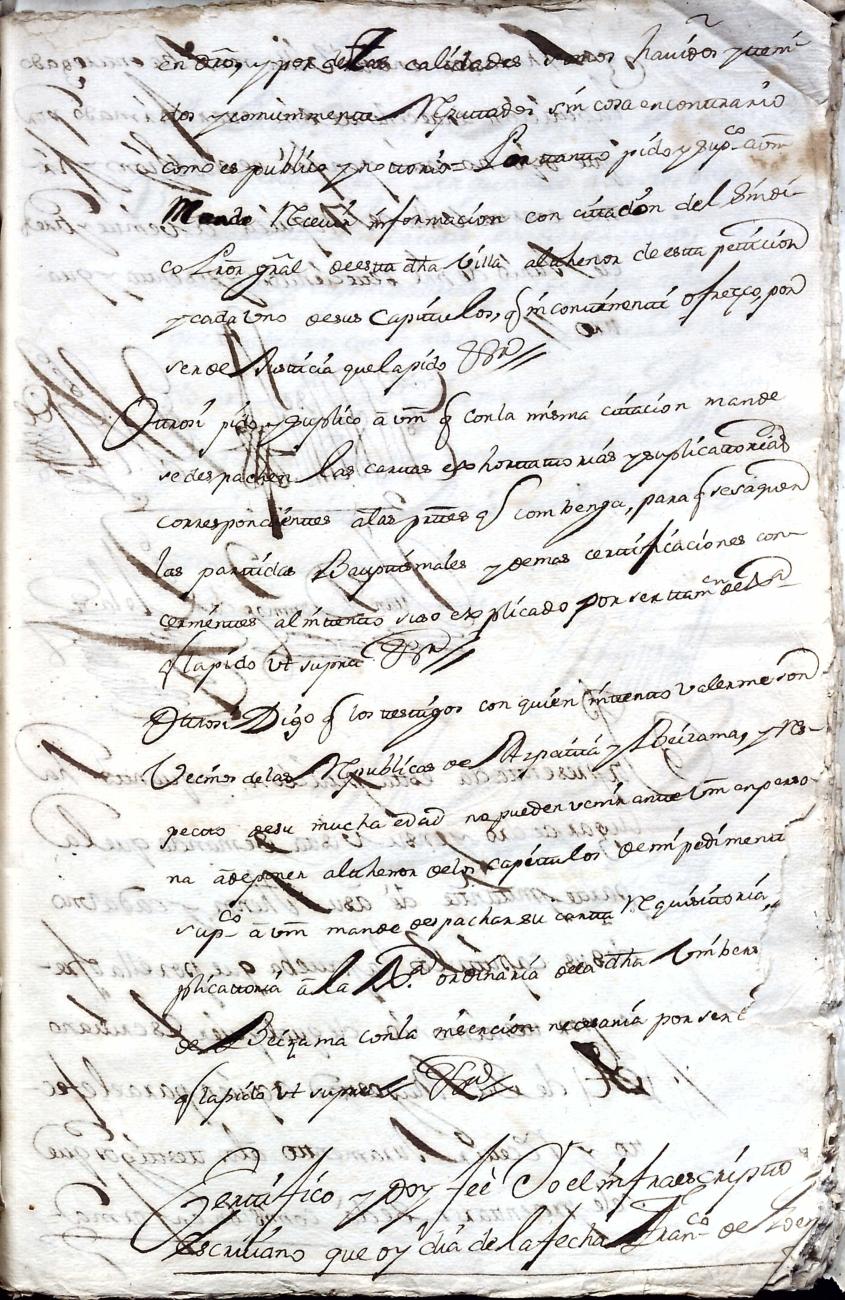 en dho, y por de tales calidades somos havidos y teni
dos y comunmente Reputtados sin cosa en contrario
como es publico y notorio Por tanto pido y supco a vm
Mande Recevir informacion con citacion del Sindi-
co Pror gral de esta dha Villa al thenor de esta peticion
y cada Uno de sus Capitulos, q incontinenti ofrezco, por
ser de Justicia que la pido
Ottrosi pido y suplico a vm q con la misma citacion mande
se despachen las cartas exhortatorias y suplicatorias
correspondientes a las prtes q combenga, para q se saquen
las partidas Bauptismales y demas certificaciones con-
cernientes al intento suso explicado por ser tamen de
q la pido Vt supra
Ottrosi Digo q los testigos con quien intento valerme son
Vecinos de las Republicas de Azpeitia y Beizama, y res-
pecto de su mucha edad no pueden venir ante Vm en perso-
na a deponer al thenor de los capitulos de mi pedimento
supco a vm mande despachar su carta Requisitoria,
plicatoria a la ordinaria de la dha
de Beizama con la insercion necesaria por ser
q la pido Vt supra
Zertifico y doy fee Yo el infraescripto
escrivano que oy dia de la fecha Franco de